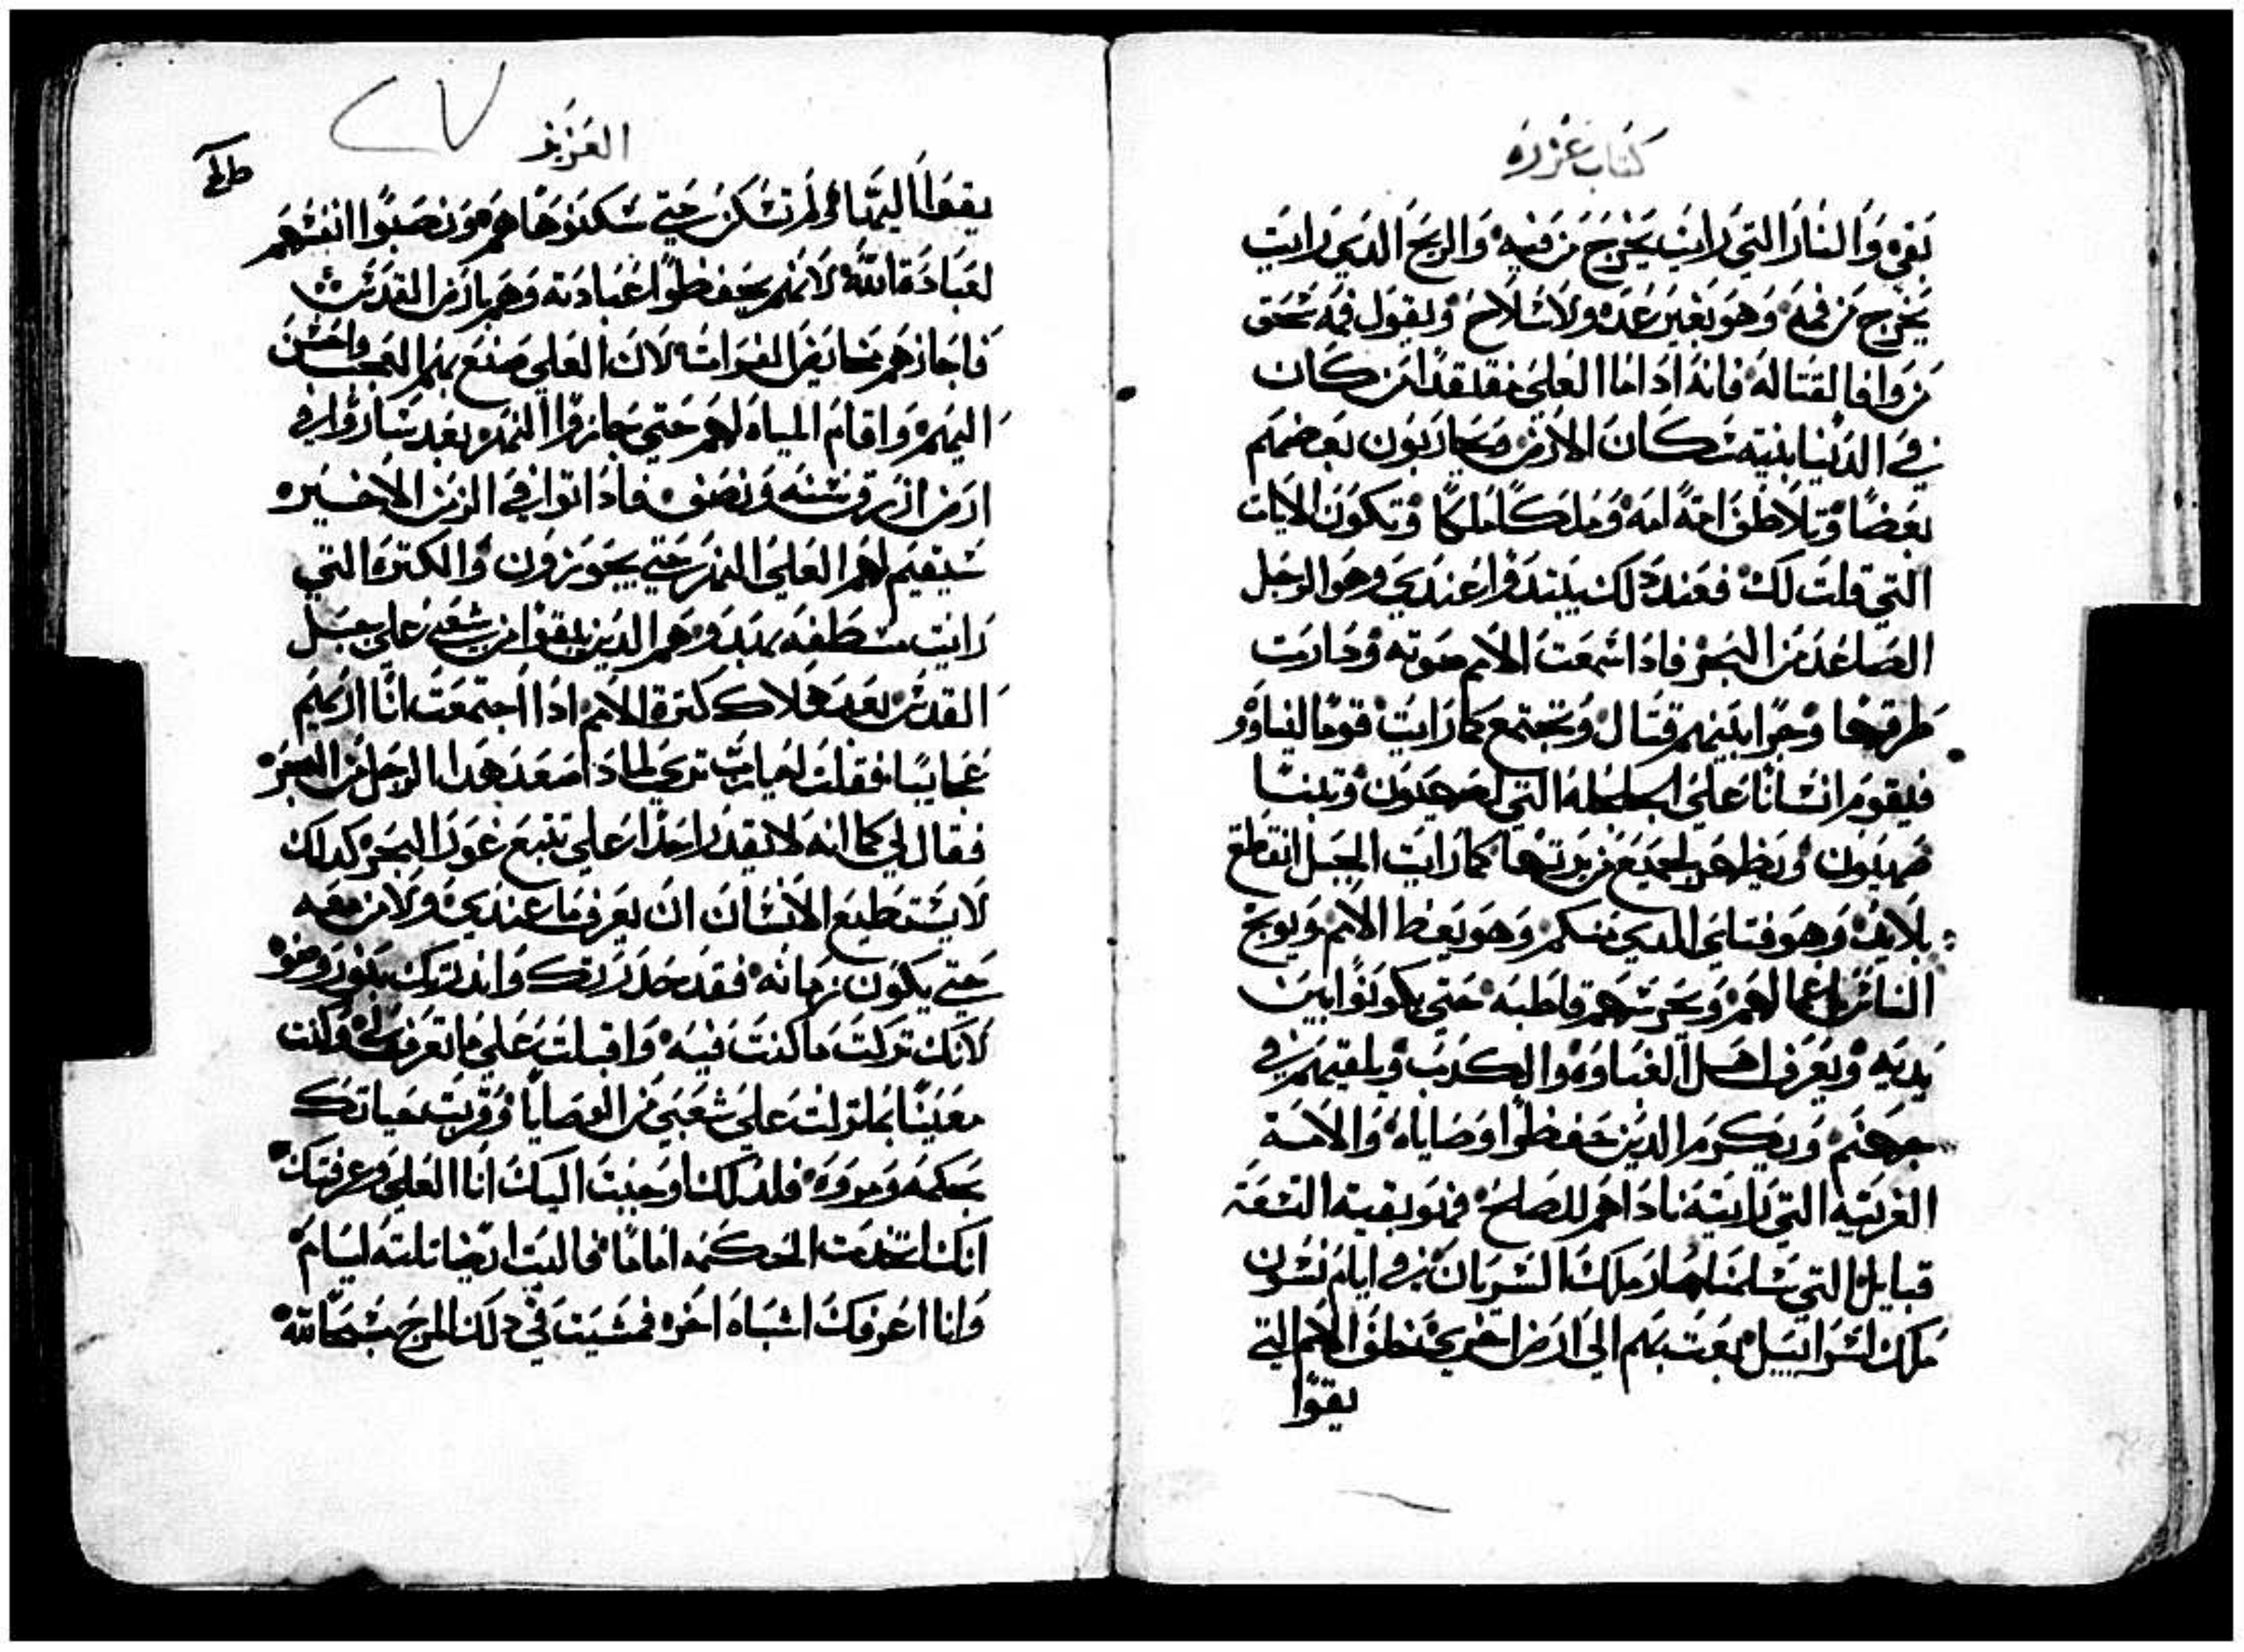 كتاب عزره
بقي والنار التي رايت يخرج من فيه والريح الدي رايت
يخرج من فمه وهو بغير عده ولا سلاح ويقول فمه
من وافا لقتاله فانه ادا اتا العلي من كان
في الدنيا سكان الارض ويحاربون بعضهم
بعضا وتلاطف امة امه وملكا ملكا وتكون الايات
التي قلت لك فعند دلك يبتدوا عندي وهو الرجل
الصاعد من البحر فادا سمعت الامم صوته وصارت
طرقها وحرا بينهم قتال وتجتمع كما رايت قوما
فليقوم انسانا علي الجلجله التي لصهيون وتبنا
صهيون ويظهر لجميع من يرتها كما رايت الجبل انقطع
بلا يد وهو فتاي الدي منكم وهو يعظ الامم ويوبخ
الناس باعمالهم ويحرسهم قاطبه حتي يكونوا بين
يديه ويعرف اهل الغباوه والكدب ويلقيهم في
جهنم ويكرم الدين حفظوا وصاياه والامة
الغريبه التي رايته ناداهم للصلح فهو بقية التسعة
قبايل التي سلمنا ملك السريان في ايام
ملك اسراييل بعت بهم الي ارض اخري خلف الامم التي
بقوا
العزيز
بقوا اليها ولم تسكن حتي سكنوها هم ونصبوا انفسهم
لعبادة الله لانهم يحفظوا عبادته وهم بارض القدس
فاجازهم مخايض الفرات لان العلي صنع بهم العجب واحسن
اليهم واقام المياه لهم حتي جازوا النهر بعد ساروا في
ارض ازرق سنه ونصف فادا اتوا في الزمن الاخيره
سيقيم لهم العلي النهر حتي يجوزون والكتره التي
رايت هم الدين بقوا من شعبي علي جبل
القدس بعد هلاك كترة الامم ادا اجتمعت انا اريهم
عجايبا فقلت له يارب تري لمادا صعد هدا الرجل من البحر
فقال لي كما انه لا يقدر احدا علي تتبع غور البحر كدلك
لا يستطيع الانسان ان يعرف ما عندي ولا من معه
حتي يكون زمانه فقد حدرتك واندرتك بنور وضو
لانك تركت ما كنت فيه واقبلت علي ما تعرف له وكنت
معينا بما نزلت علي شعبي من الوصايا وقربت حياتك
بحكمه ومروة فلدلك اوحيت اليك انا العلي وعرفتك
انك اتخدت الحكمه اماما فالبت ايضا تلته ايام
وانا اعرفك اشباه اخر فمشيت في دلك المرج شبحا لله